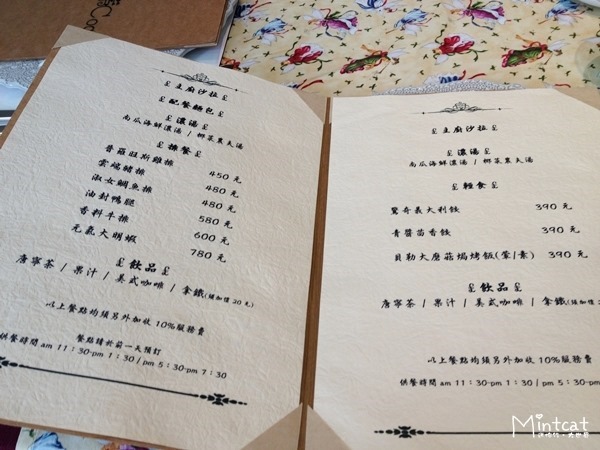 主廚沙拉
配餐麵包
濃湯
南瓜海鮮濃湯 / 椰菜農夫湯
排餐
普羅旺斯雞排 450 元
雲端豬排 480 元
淑女鯛魚排 480 元
油封鴨腿 580 元
香料牛排 600 元
元氣大明蝦 780 元
飲品
唐寧茶 / 果汁 / 美式咖啡 / 拿鐵(須加價 20 元)
以上餐點均須另外加收 10%服務費
餐點請於前一天預訂
供餐時間 am 11:30-pm 1:30 / pm 5:30-pm 7:30
主廚沙拉
濃湯
南瓜海鮮濃湯 / 椰菜農夫湯
輕食
驚奇義大利餃 390 元
青醬茴香餃 390 元
貝勒大蘑菇焗烤飯(葷/素) 390 元
飲品
唐寧茶 / 果汁 / 美式咖啡 / 拿鐵(須加價
以上餐點均須另外加收 10%服務費
供餐時間 am 11:30-pm 1:30 / pm 5:30-pm
Mintcat